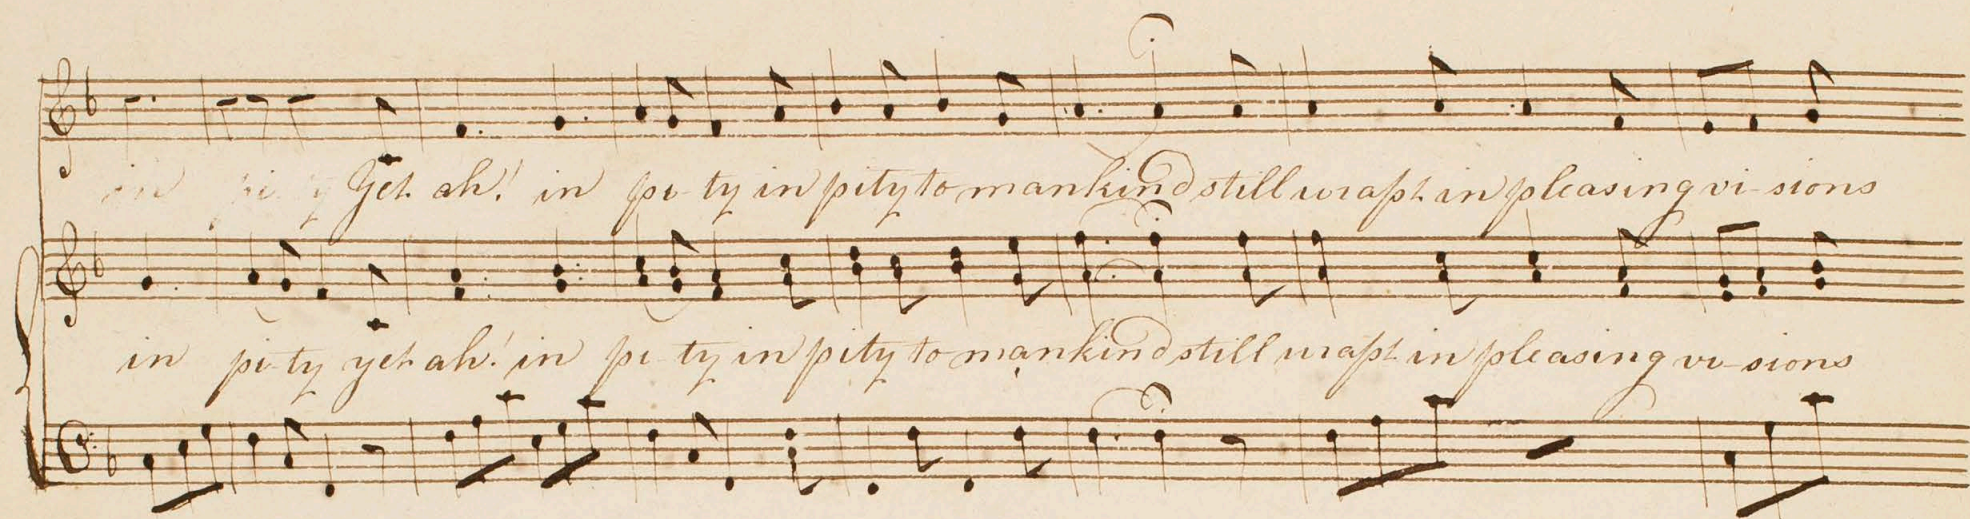 in pi-ty Yet ah! in pi-ty in pity to mankind still wrapt in pleasing vi-sions
in pi-ty yet ah! in pi-ty in pity to mankind still wrapt in pleasing vi-sions